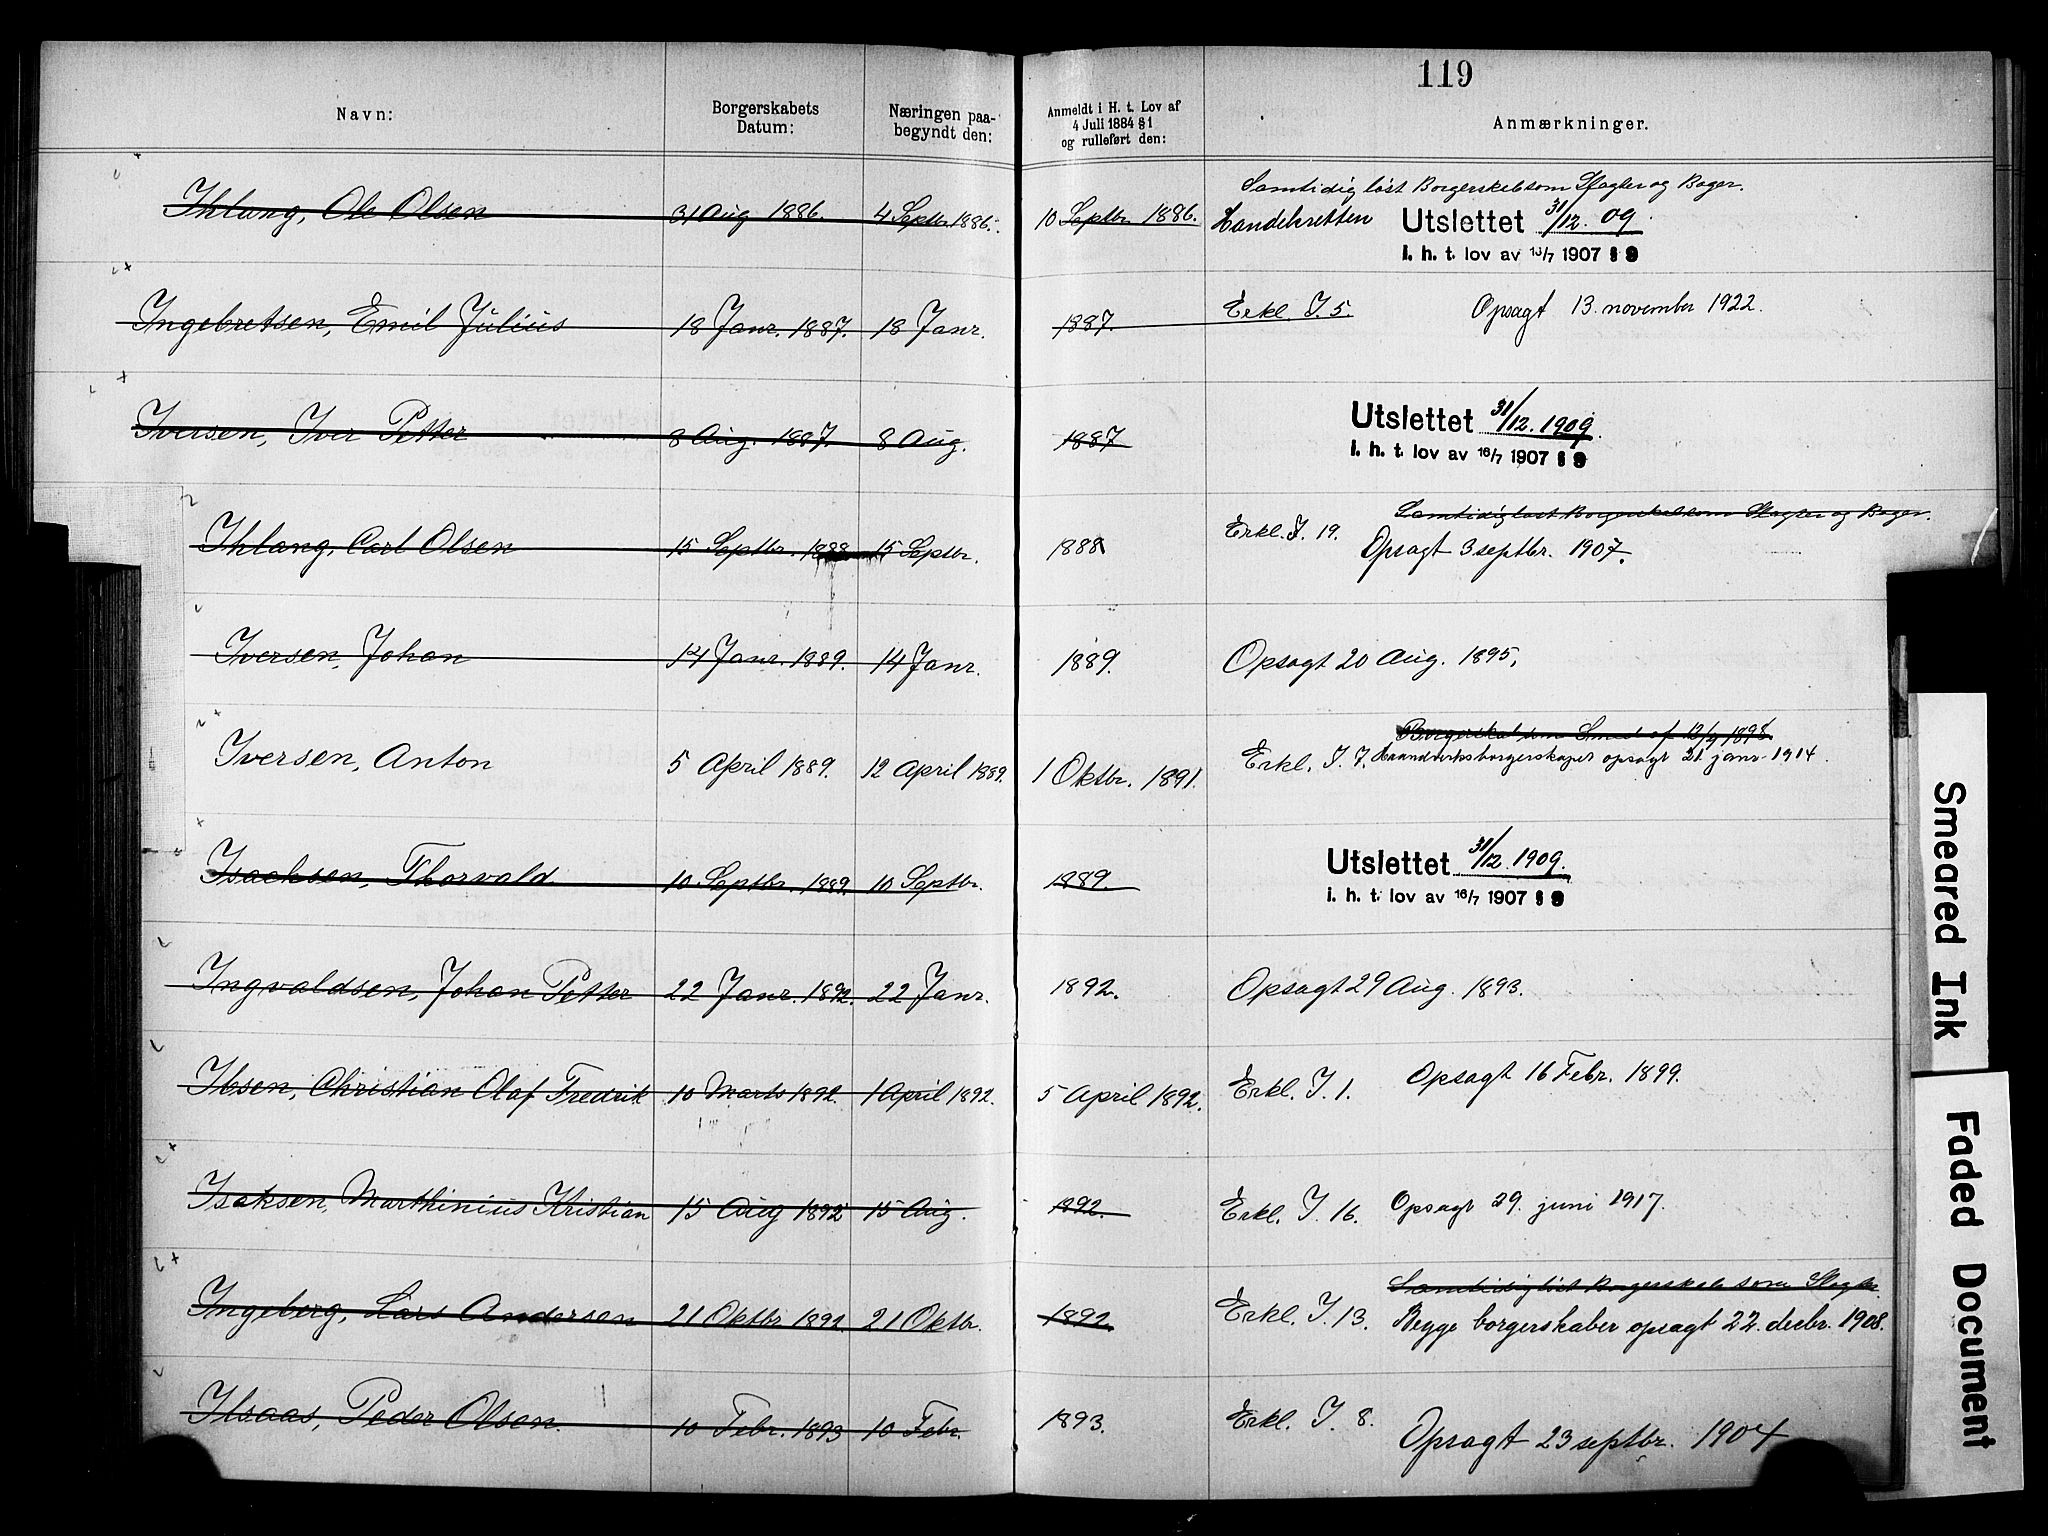 119
Navn: Borgerskabets Datum: Næringen paa- begyndt den: Anmeldt i H. t. Lov af 4 Juli 1884 § 1 og rulleført den: Anmærkninger.
Samtidig løst Borgerskab som Slagter og Bager.
Ihlang, Ole Olsen 31 Aug 1886. 4 Septbr 1886. 10 Septbr. 1886. Handelsretten Utslettet 31/12. 09.
i. h. t. lov av 16/7 1907 § 9
Ingebretsen, Emil Julius 18 Janr. 1887. 18 Janr. 1887. Erkl. I. 5. Opsagt 13. november 1922.
Iversen, Iver Petter 8 Aug. 1887. 8 Aug. 1887 Utslettet 31/12. 1909.
i. h. t. lov av 16/7 1907 § 9
Samtidig løst Borgerskab som Slagter og Bager.
Ihlang, Carl Olsen 15 Septbr. 1888 15 Septbr. 1888 Erkl. I. 19. Opsagt 3 septbr. 1907.
Iversen, Johan 14 Janr. 1889. 14 Janr. 1889. Opsagt 20 Aug. 1895,
Borgerskab som Smed af 12/4 1898.
Iversen, Anton 5 April 1889. 12 April 1889. 1 Oktbr. 1891. Erkl. I. 7. Haandverksborgerskapet opsagt 21. janr. 1914.
Isacksen, Thorvald 10 Septbr. 1889. 10 Septbr. 1889. Utslettet 31/12. 1909.
i. h. t. lov av 16/7 1907 § 9
Ingvaldsen, Johan Petter 22 Janr. 1892. 22 Janr. 1892. Opsagt 29 Aug. 1893.
Ibsen, Christian Olaf Fredrik 10 Marts 1892. 1 April 1892. 5 April 1892. Erkl. I. 1. Opsagt 16 Febr. 1899.
Isaksen, Marthinius Kristian 15 Aug 1892 15 Aug. 1892. Erkl. I. 16. Opsagt 29. juni 1917.
Samtidig løst Borgerskab som Slagter.
Ingeberg, Lars Andersen 21 Oktbr 1892. 21 Oktbr. 1892. Erkl. I. 13. Begge borgerskaber opsagt 22. decbr. 1908.
Ilsaas, Peder Olsen. 10 Febr. 1893 10 Febr. 1893. Erkl. I. 8. Opsagt 23 septbr. 1904
Smeared Ink
Faded Document